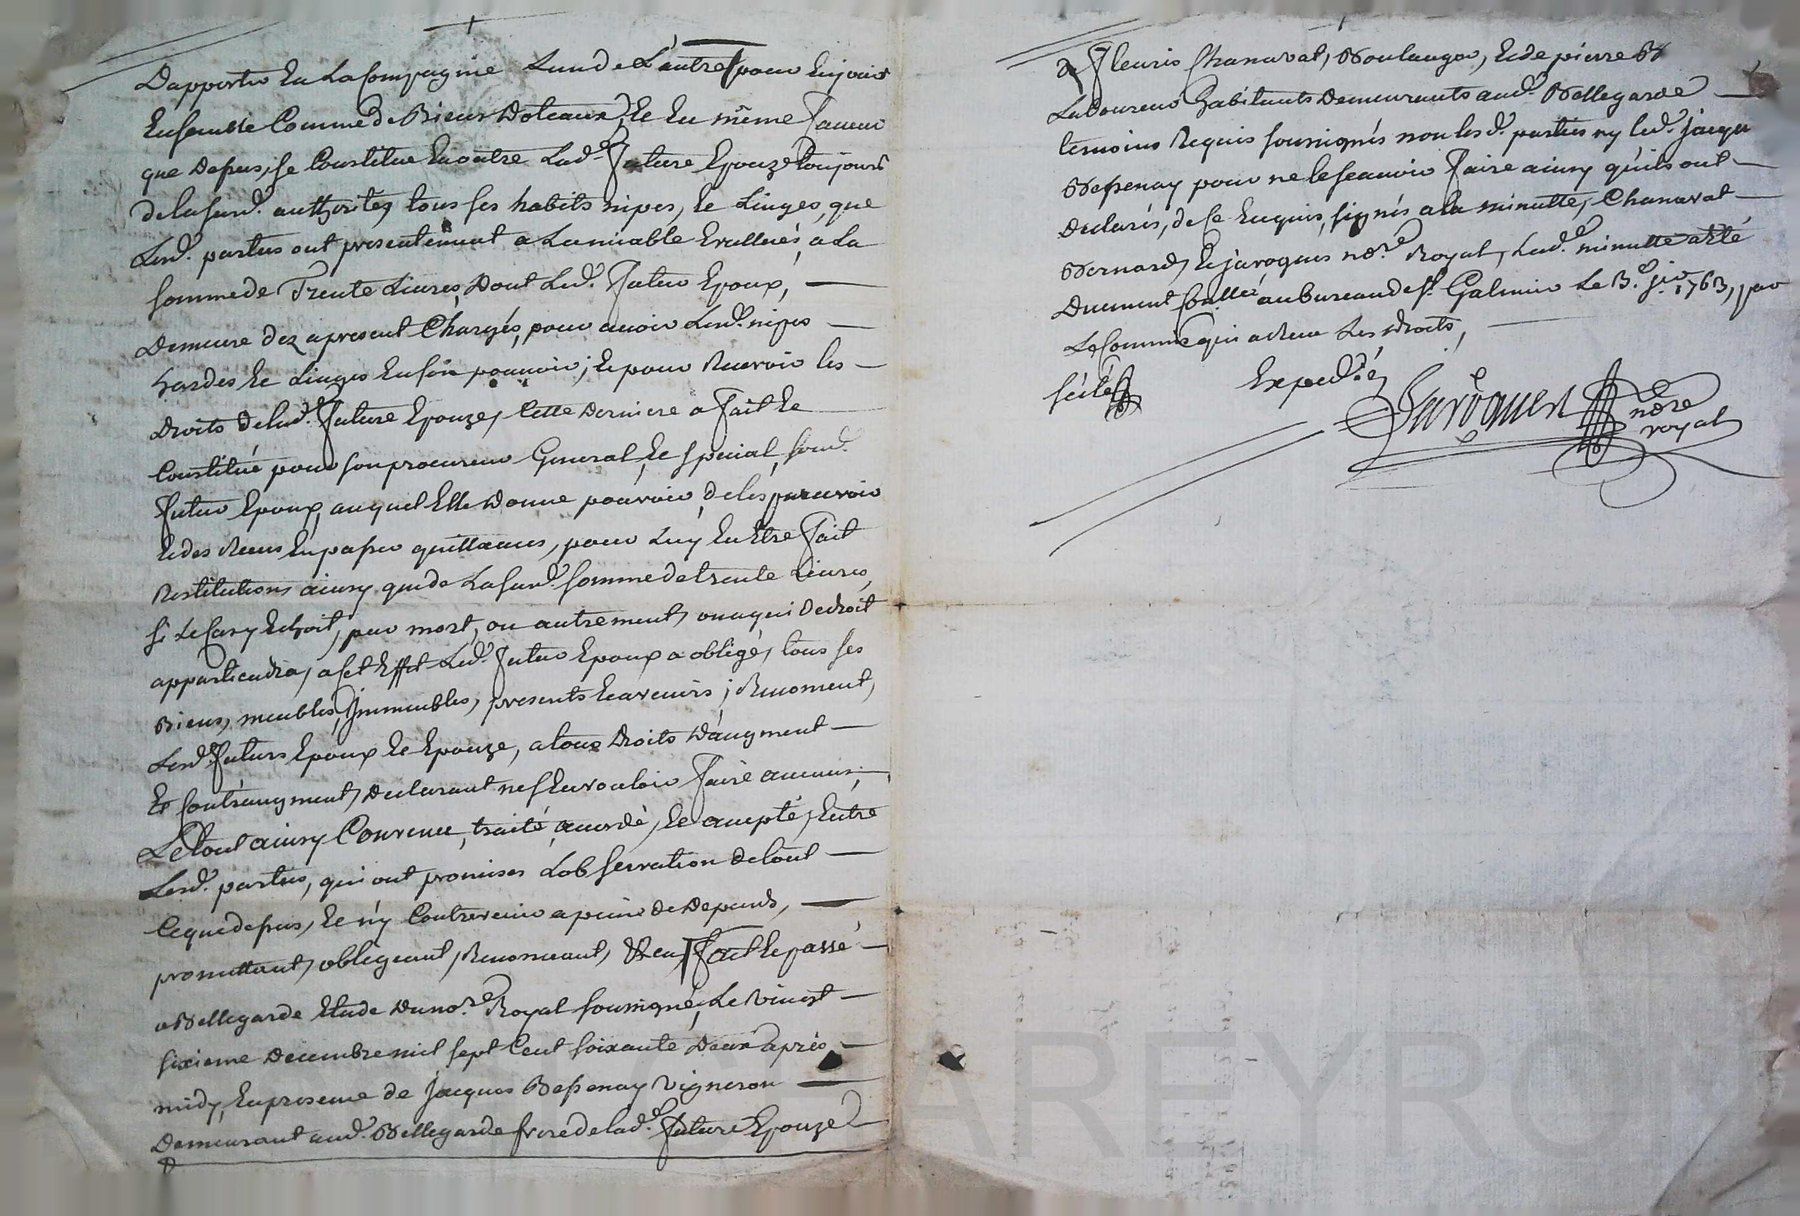 Dapporter En La Compagnie Lun de L'autre pour En jouir
Ensemble Comme de Biens Doteaux, Et En même faveur
que Depus, se Constitue En outre Lad.e future Epouze toujours
de la susd. authoritez tous ses habits nipes, Et Linges, que
Lesd. parties ont presentement a Lamiable Evallués, a La
somme de Trente Livres, Dont Led. futur Epoux, —
Demeure dez apresent Chargés, pour avoir Lesd. nipes —
hardes Et Linges En son pouvoir; Et pour Recevoir les —
Droits de Lad.e future Epouze, Cette Derniere a fait Et
Constitué pour son procureur General, Et special, sond.
futur Epoux, auquel Elle Donne pouvoir, de les percevoir
Et des Reçus En passer quittances, pour Luy En Etre fait
Restitutions ainsy que de La susd. somme de trente Livres,
si Le Cas y Echoit, par mort, ou autrement, ou a qui de droit
appartiendra, a Cet Effet Led. futur Epoux a obligé, tous ses
Biens, meubles, Immeubles, presents Et avenirs; Renoncent,
Lesd. futurs Epoux Et Epouze, a tous Droits D'augment —
Et Contraugment, Declarant ne s'En vouloir faire aucuns;
Le tout ainsy Convenu, traité, accordé, Et accepté, Entre
Lesd. parties, qui ont promises Lobservation de tout —
Ce que depus, Et n'y Contrevenir a peine de Depends, —
promettant, obligeant, Renonceant, Et ca, fait Et passé —
a Bellegarde Etude Du no.re Royal soussigné, Le Vingt —
sixieme Decembre mil sept Cent soixante Deux après —
midy, En presence de Jacques Bessenay Vigneron —
Demeurant aud. Bellegarde frere de lad.e future Epouze
de fleuris Chanavat, Boulanger, Et de pierre B
Laboureur habitants Demeurants aud. Bellegarde —
temoins Requis soussignés non les d. parties ny led. Jacques
Bessenay pour ne le sçeavoir faire ainsy qu'ils ont —
Declarés, de Ce Enquis, signés a la minutte, Chanavat —
Bernard, Et Jaroques no.re Royal, Lad.e minutte a Eté
Duement Conllée au bureau de St. Galmier Le 3.e Jer. 1763, par
Le Commis qui a Reçu Les droits,
scélé
Expediée
Jaroques
no.re
royal